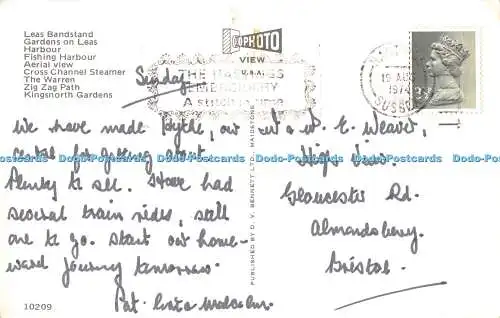 Leas Bandstand
Gardens on Leas
Harbour
Fishing Harbour
Aerial view
Cross Channel Steamer
The Warren
Zig Zag Path
Kingsnorth Gardens
PHOTO
VIEW
U.S.A.
THE HASTINGS
EMBROIDERY
A stitch in time
19 AUG
1974
SUSSEX
Sunday
We have made Hythe, our
central for getting about.
Plenty to see. Have had
several train rides, still
one to go. Start our home-
ward journey tomorrow.
Pat
Malcolm.
PUBLISHED BY D. V. BENNETT LTD., MAIDSTONE
E. Weaver,
High View,
Gloucester Rd.
Almondsbury.
Bristol.
10209
Dodo-Postcards Dodo-Postcards Dodo-Postcards Dodo-Postcards Dodo-Postcards